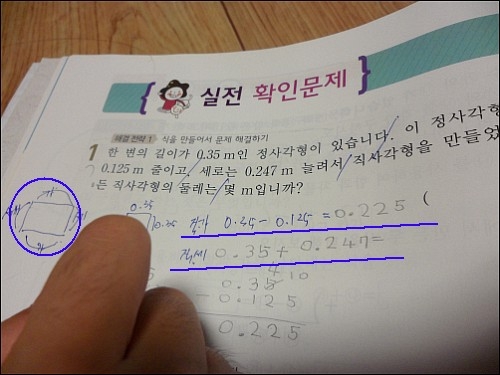 실전 확인문제
해결 전략 1 식을 만들어서 문제 해결하기
1 한 변의 길이가 0.35 m인 정사각형이 있습니다. 이 정사각형
0.125 m 줄이고, 세로는 0.247 m 늘려서 직사각형을 만들었
든 직사각형의 둘레는 몇 m입니까? (
0.35
0.35
0.35 - 0.125 = 0.225
0.35 + 0.247 =
4 10
0.35
- 0.125
0.225